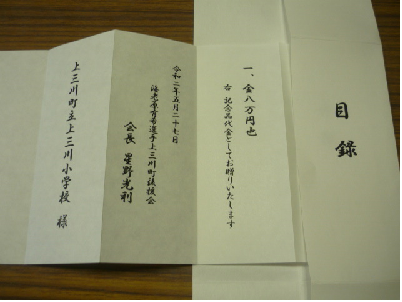 目録
一、金八万円也
右 記念品代金としてお贈りいたします
令和二年五月二十七日
海老原育世選手上三川町後援会
会長 星野光利
上三川町立上三川小学校 様